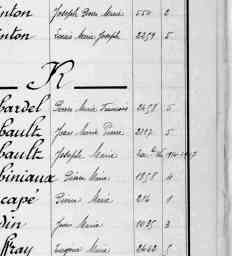 inton Joseph Pierre Marie 550 2
inton Louis Marie Joseph 2259 5
R
bardel Pierre Marie François 2458 5
bault Jean Marie Pierre 2117 5
bault Joseph Marie
biniaux Pierre Marie 1858 4
capé Pierre Marie 216 1
din Jean Marie 1025 3
ffray Eugène Marie 2660 5